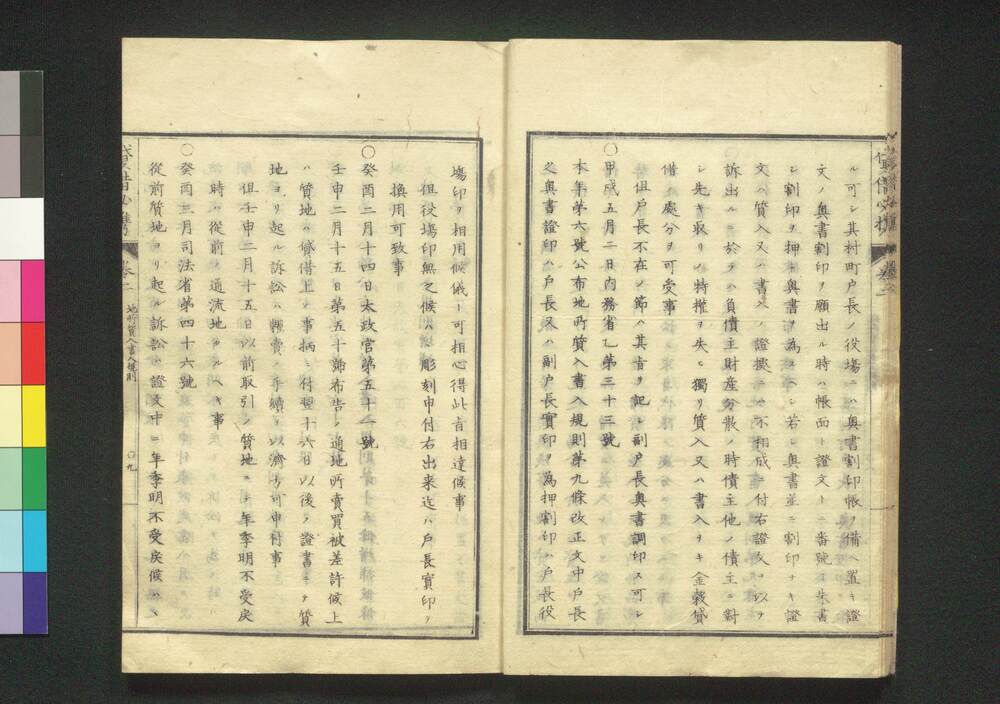 ル可シ其村町戸長ノ役場ニハ奥書割印帳ヲ備ヘ置キ證
文ノ奥書割印ヲ願出ル時ハ帳面ト證文トニ番號ヲ朱書
シ割印ヲ押シ奥書ヲ為スヘシ若シ奥書並ニ割印ナキ證
文ハ質入又ハ書入ノ證據ニ不相成ニ付右證文ヲ以テ
訴出ルニ於テハ負債主財産分散ノ時債主他ノ債主ニ對
シ先キ取リノ特權ヲ失ヒ獨リ質入又ハ書入ナキ金穀貸
借ノ處分ヲ可受事
但戸長不在ノ節ハ其旨ヲ記シ副戸長奥書調印ス可シ
○甲戌五月二日内務省乙第三十三號
本年第六號公布地所質入書入規則第九條改正文中戸長
之奥書證印ハ戸長又ハ副戸長實印ヲ為押割印ハ戸長役
場印ヲ相用候儀ト可相心得此旨相達候事
但役場印無之候ハヽ彫刻申付右出来迄ハ戸長實印ヲ
換用可致事
○癸酉二月十四日太政官第五十一號
壬申二月十五日第五十號布告ノ通地所賣買被差許候上
ハ質地ハ貸借上ノ事柄ニ付翌十六日以後ノ證書ニテ質
地ヨリ起ル訴訟ハ糶賣ノ手續ヲ以濟方可申付事
但壬申二月十五日以前取引ノ質地ニテ年季明不受戻
時ハ従前ノ通流地タルヘキ事
○癸酉三月司法省第四十六號
従前質地ヨリ起ル訴訟ハ證文中ニ年季明不受戻候ハヽ
巻二
地所質入書入規則
○九